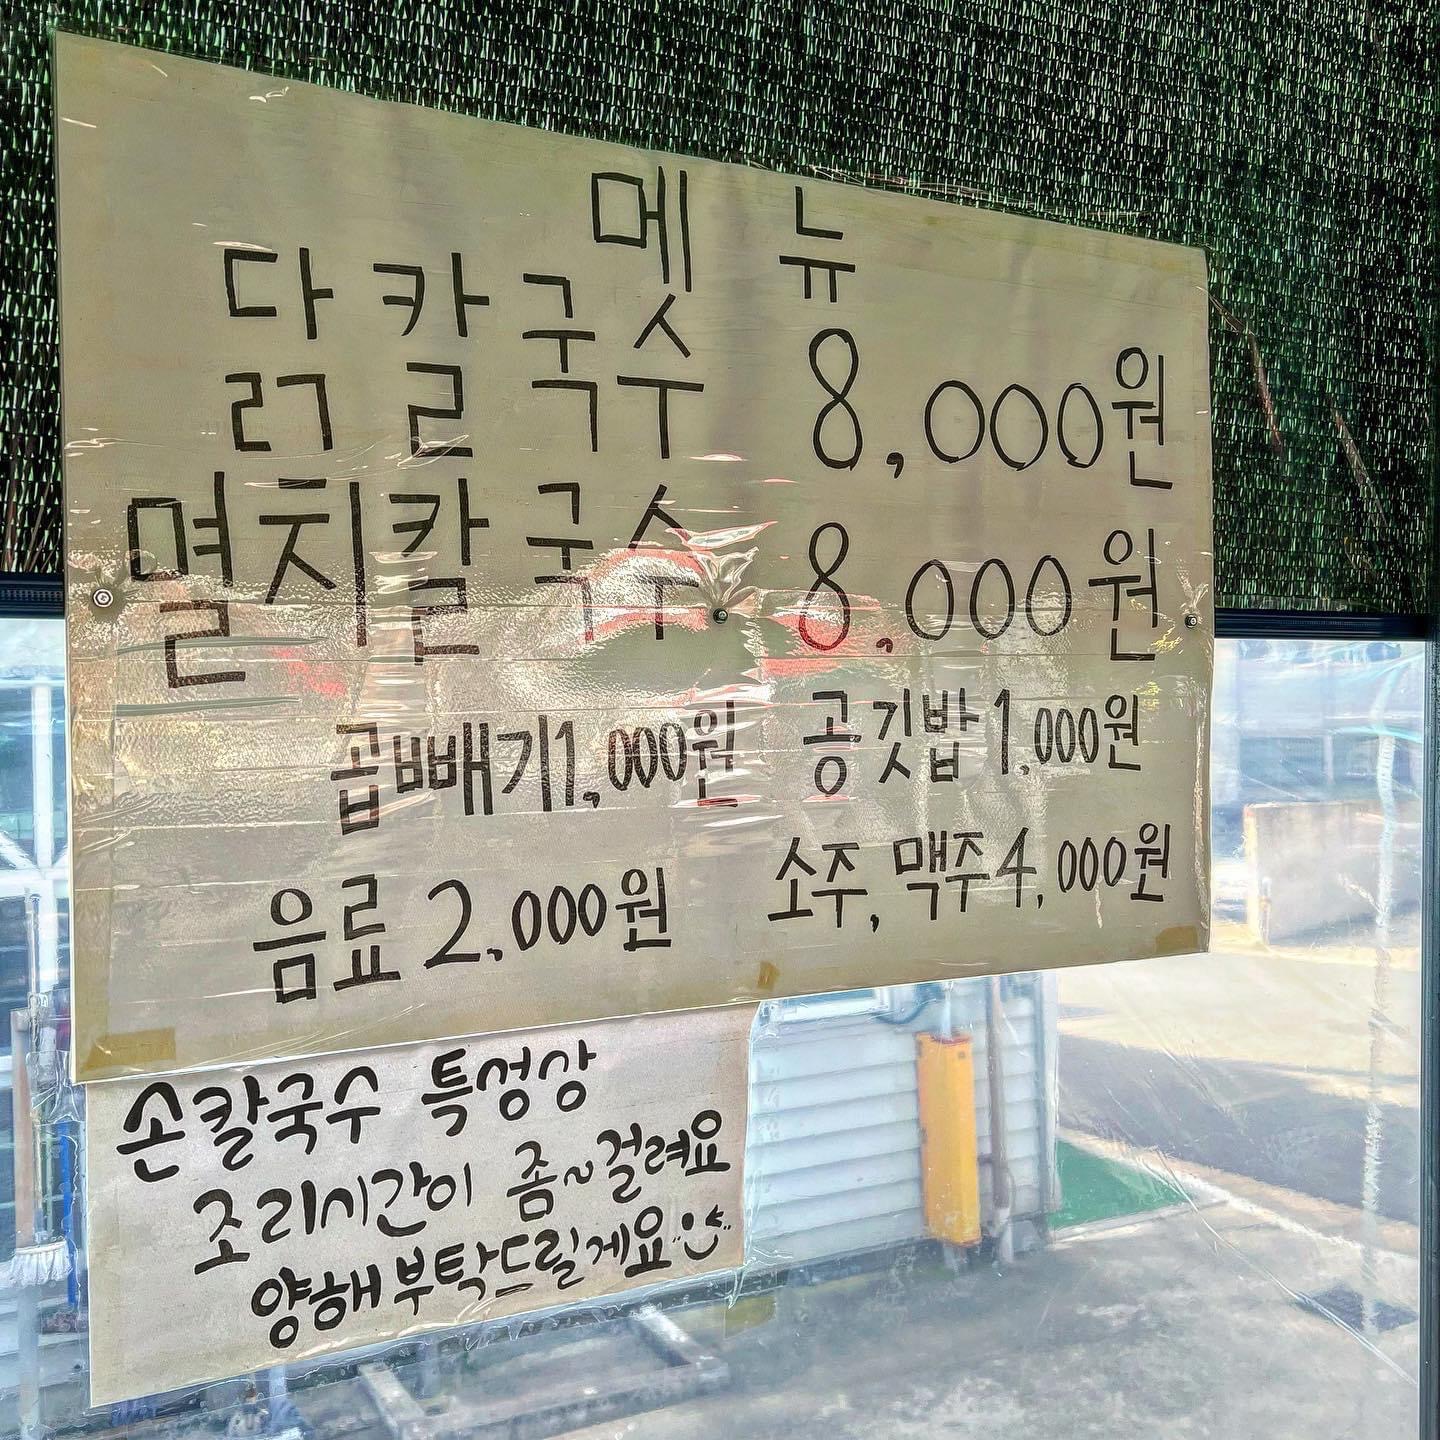 메 뉴
닭칼국수 8,000원
멸치칼국수 8,000원
곱빼기 1,000원 공깃밥 1,000원
음료 2,000원 소주, 맥주 4,000원
손칼국수 특성상
조리시간이 좀~걸려요
양해부탁드릴게요